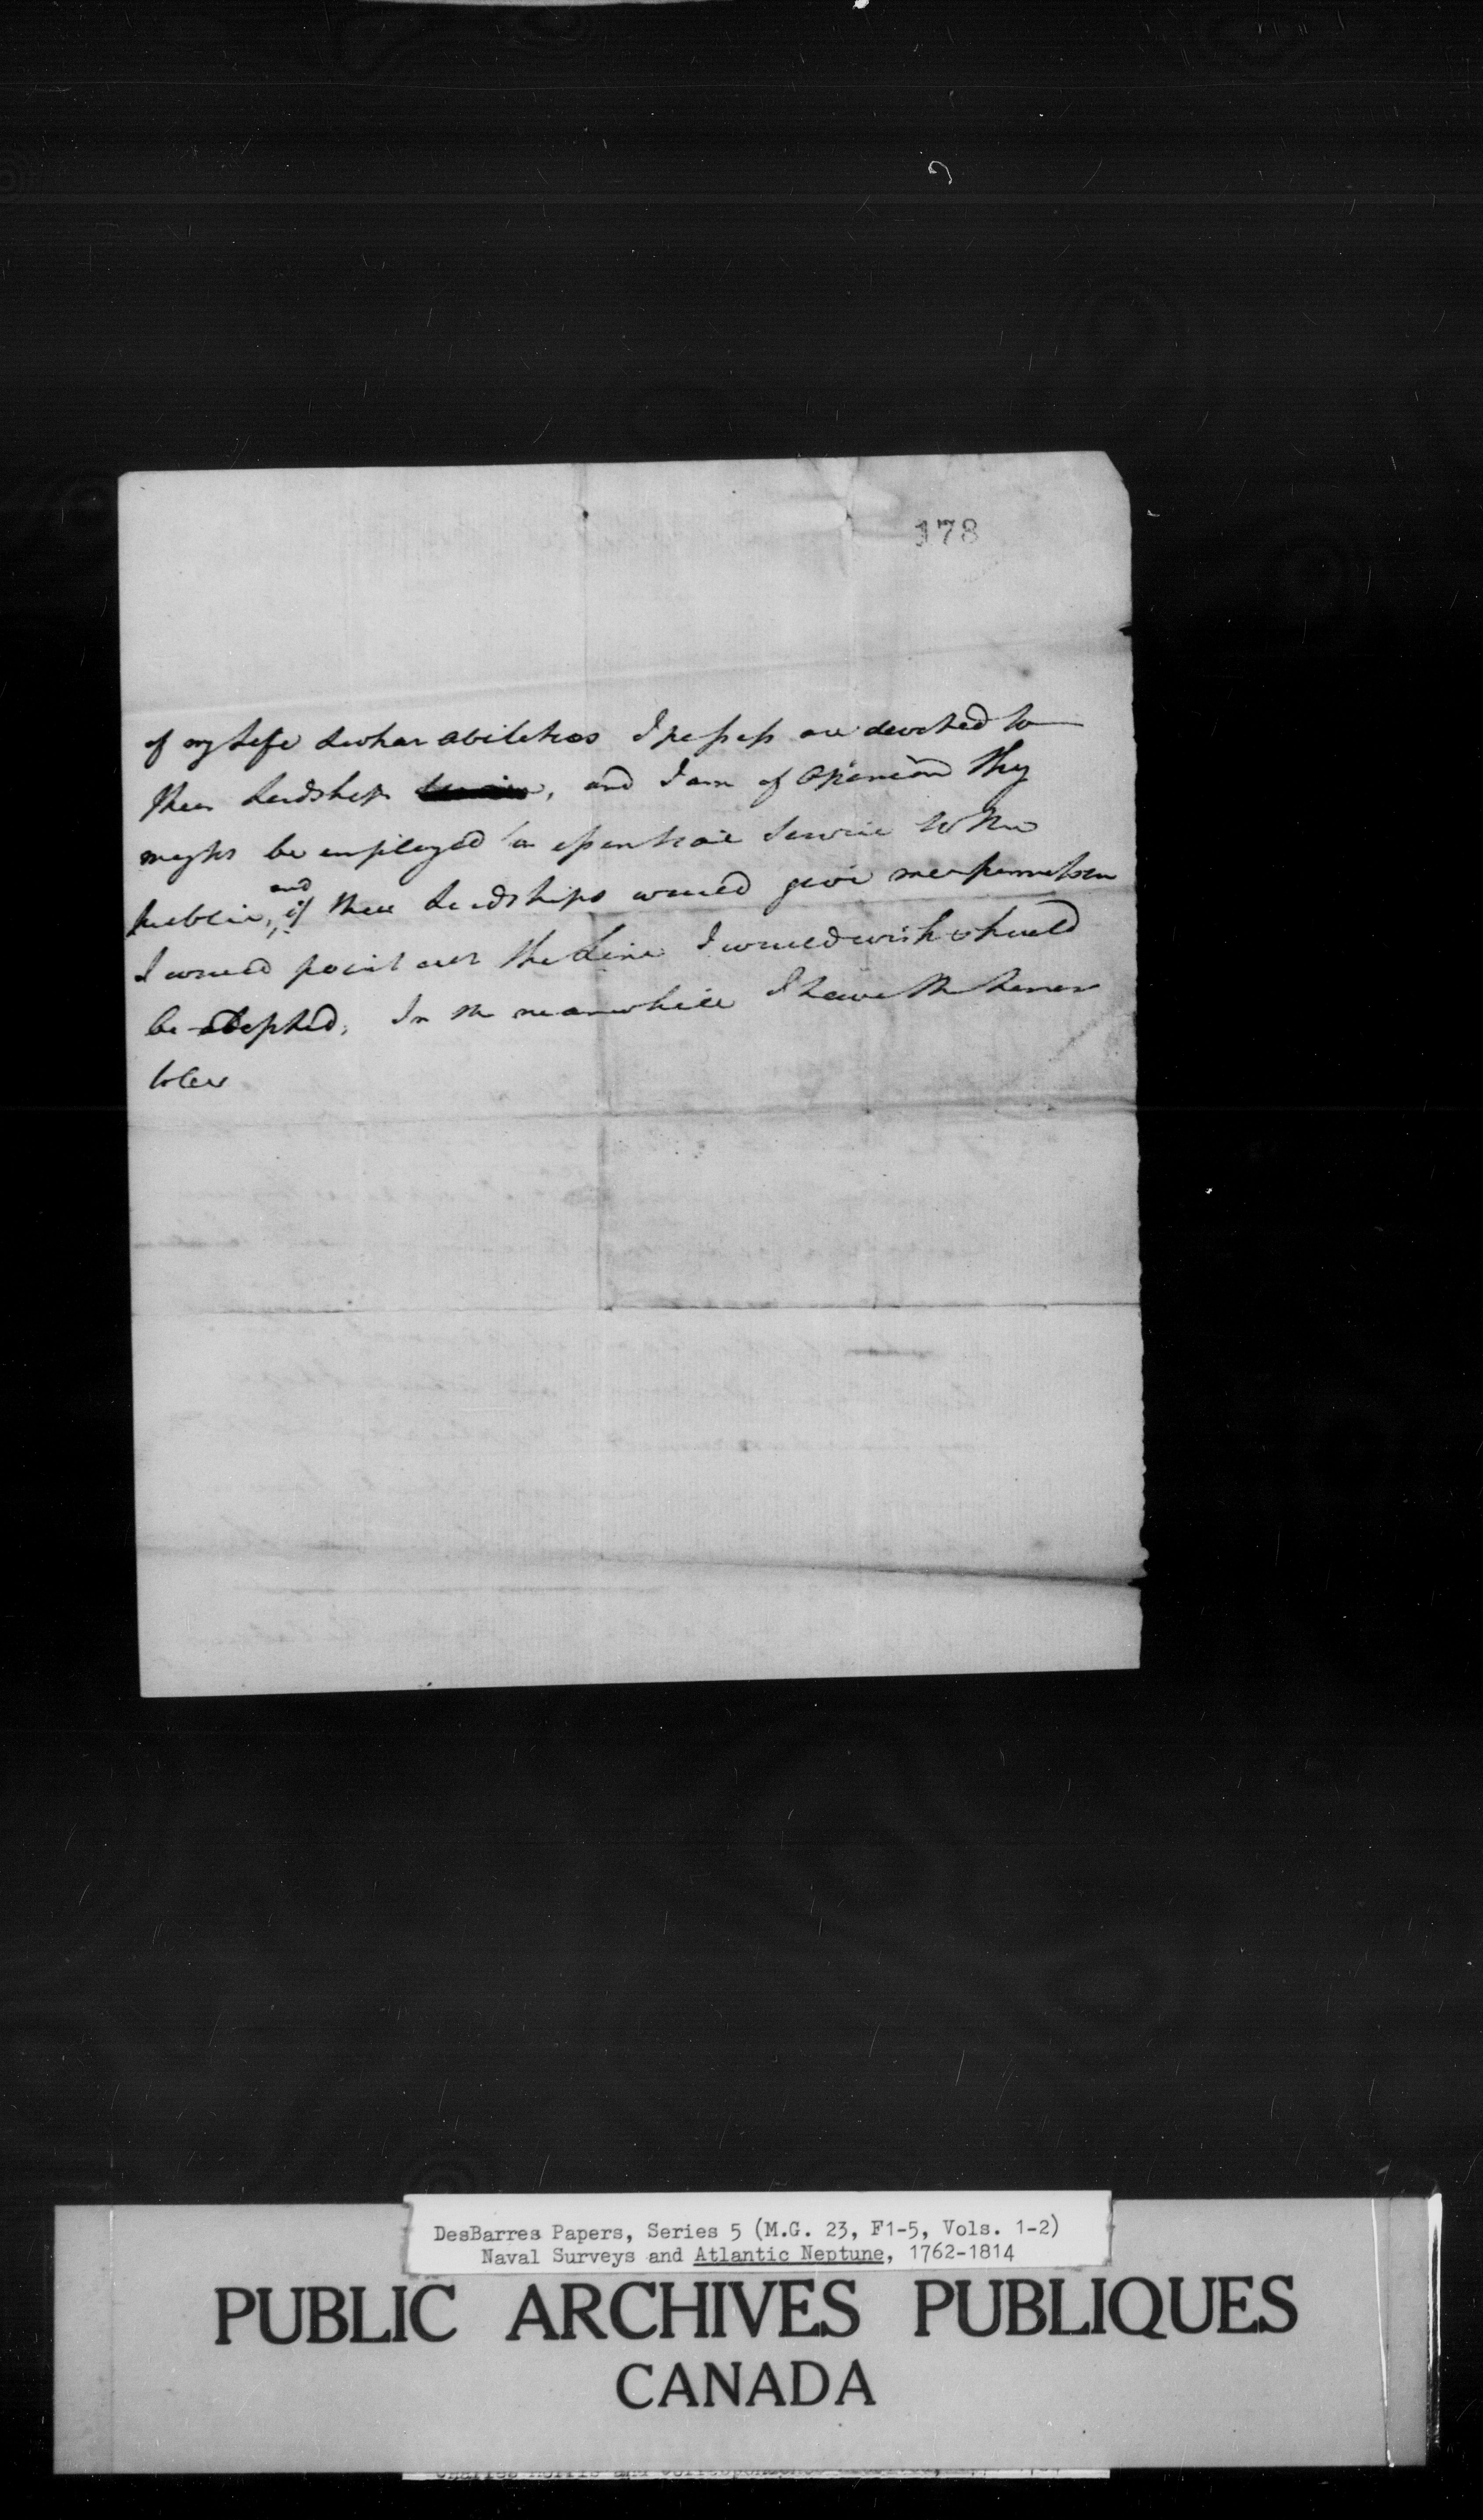 178
of my Life & what abilities I possess are devoted to
their Lordships , and I am of Opinion they
might be employed in essential Service to the
Public, and if their Lordships would give me permission
I would point out the Line I would wish should
be adopted. In the meanwhile I have the honor
to be
DesBarres Papers, Series 5 (M.G. 23, F1-5, Vols. 1-2)
Naval Surveys and Atlantic Neptune, 1762-1814
PUBLIC ARCHIVES PUBLIQUES
CANADA